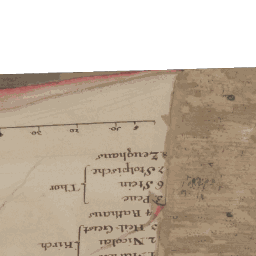 1. Marien
2. Nicolai
3. Heil. Geist
Kirch
4 Rathaus
5 Peene
6 Stein
7 Stolpische
Thor
8 Zeughaus
10 20 30